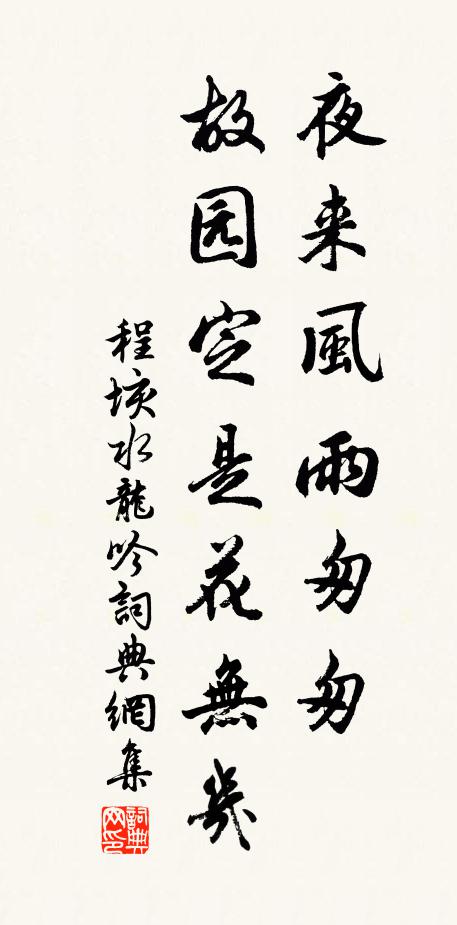 夜来風雨匆匆
故园定是花無幾
程垓水龍吟詞典網集
詞典网印